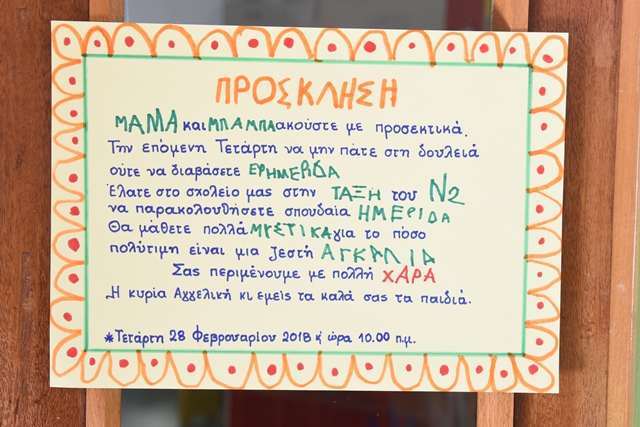 ΠΡΟΣΚΛΗΣΗ
ΜΑΜΑ και ΜΠΑΜΠΑ ακούστε με προσεκτικά.
Την επόμενη Τετάρτη να μην πάτε στη δουλειά
ούτε να διαβάσετε ΕΡΗΜΕΡΙΔΑ
Ελάτε στο σχολείο μας στην ΤΑΞΗ του Ν2
να παρακολουθήσετε σπουδαία ΗΜΕΡΙΔΑ
Θα μάθετε πολλά ΜΥΣΤΙΚΑ για το πόσο
πολύτιμη είναι μια ζεστή ΑΓΚΑΛΙΑ
Σας περιμένουμε με πολλή ΧΑΡΑ
Η κυρία Αγγελική κι εμείς τα καλά σας τα παιδιά.
*Τετάρτη 28 Φεβρουαρίου 2018 η ώρα 10.00 π.μ.